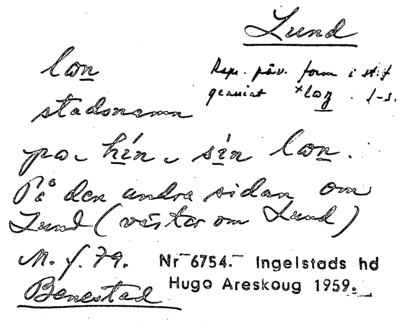 Lund
lon
Rep. påv. form i st. f
genuint *log. f-s.
stadsnamn
pa- hin - sin lon.
På den andra sidan om
Lund (väster om Lund)
M. f. 79. Nr 6754. Ingelstads hd
Benestad Hugo Areskoug 1959.